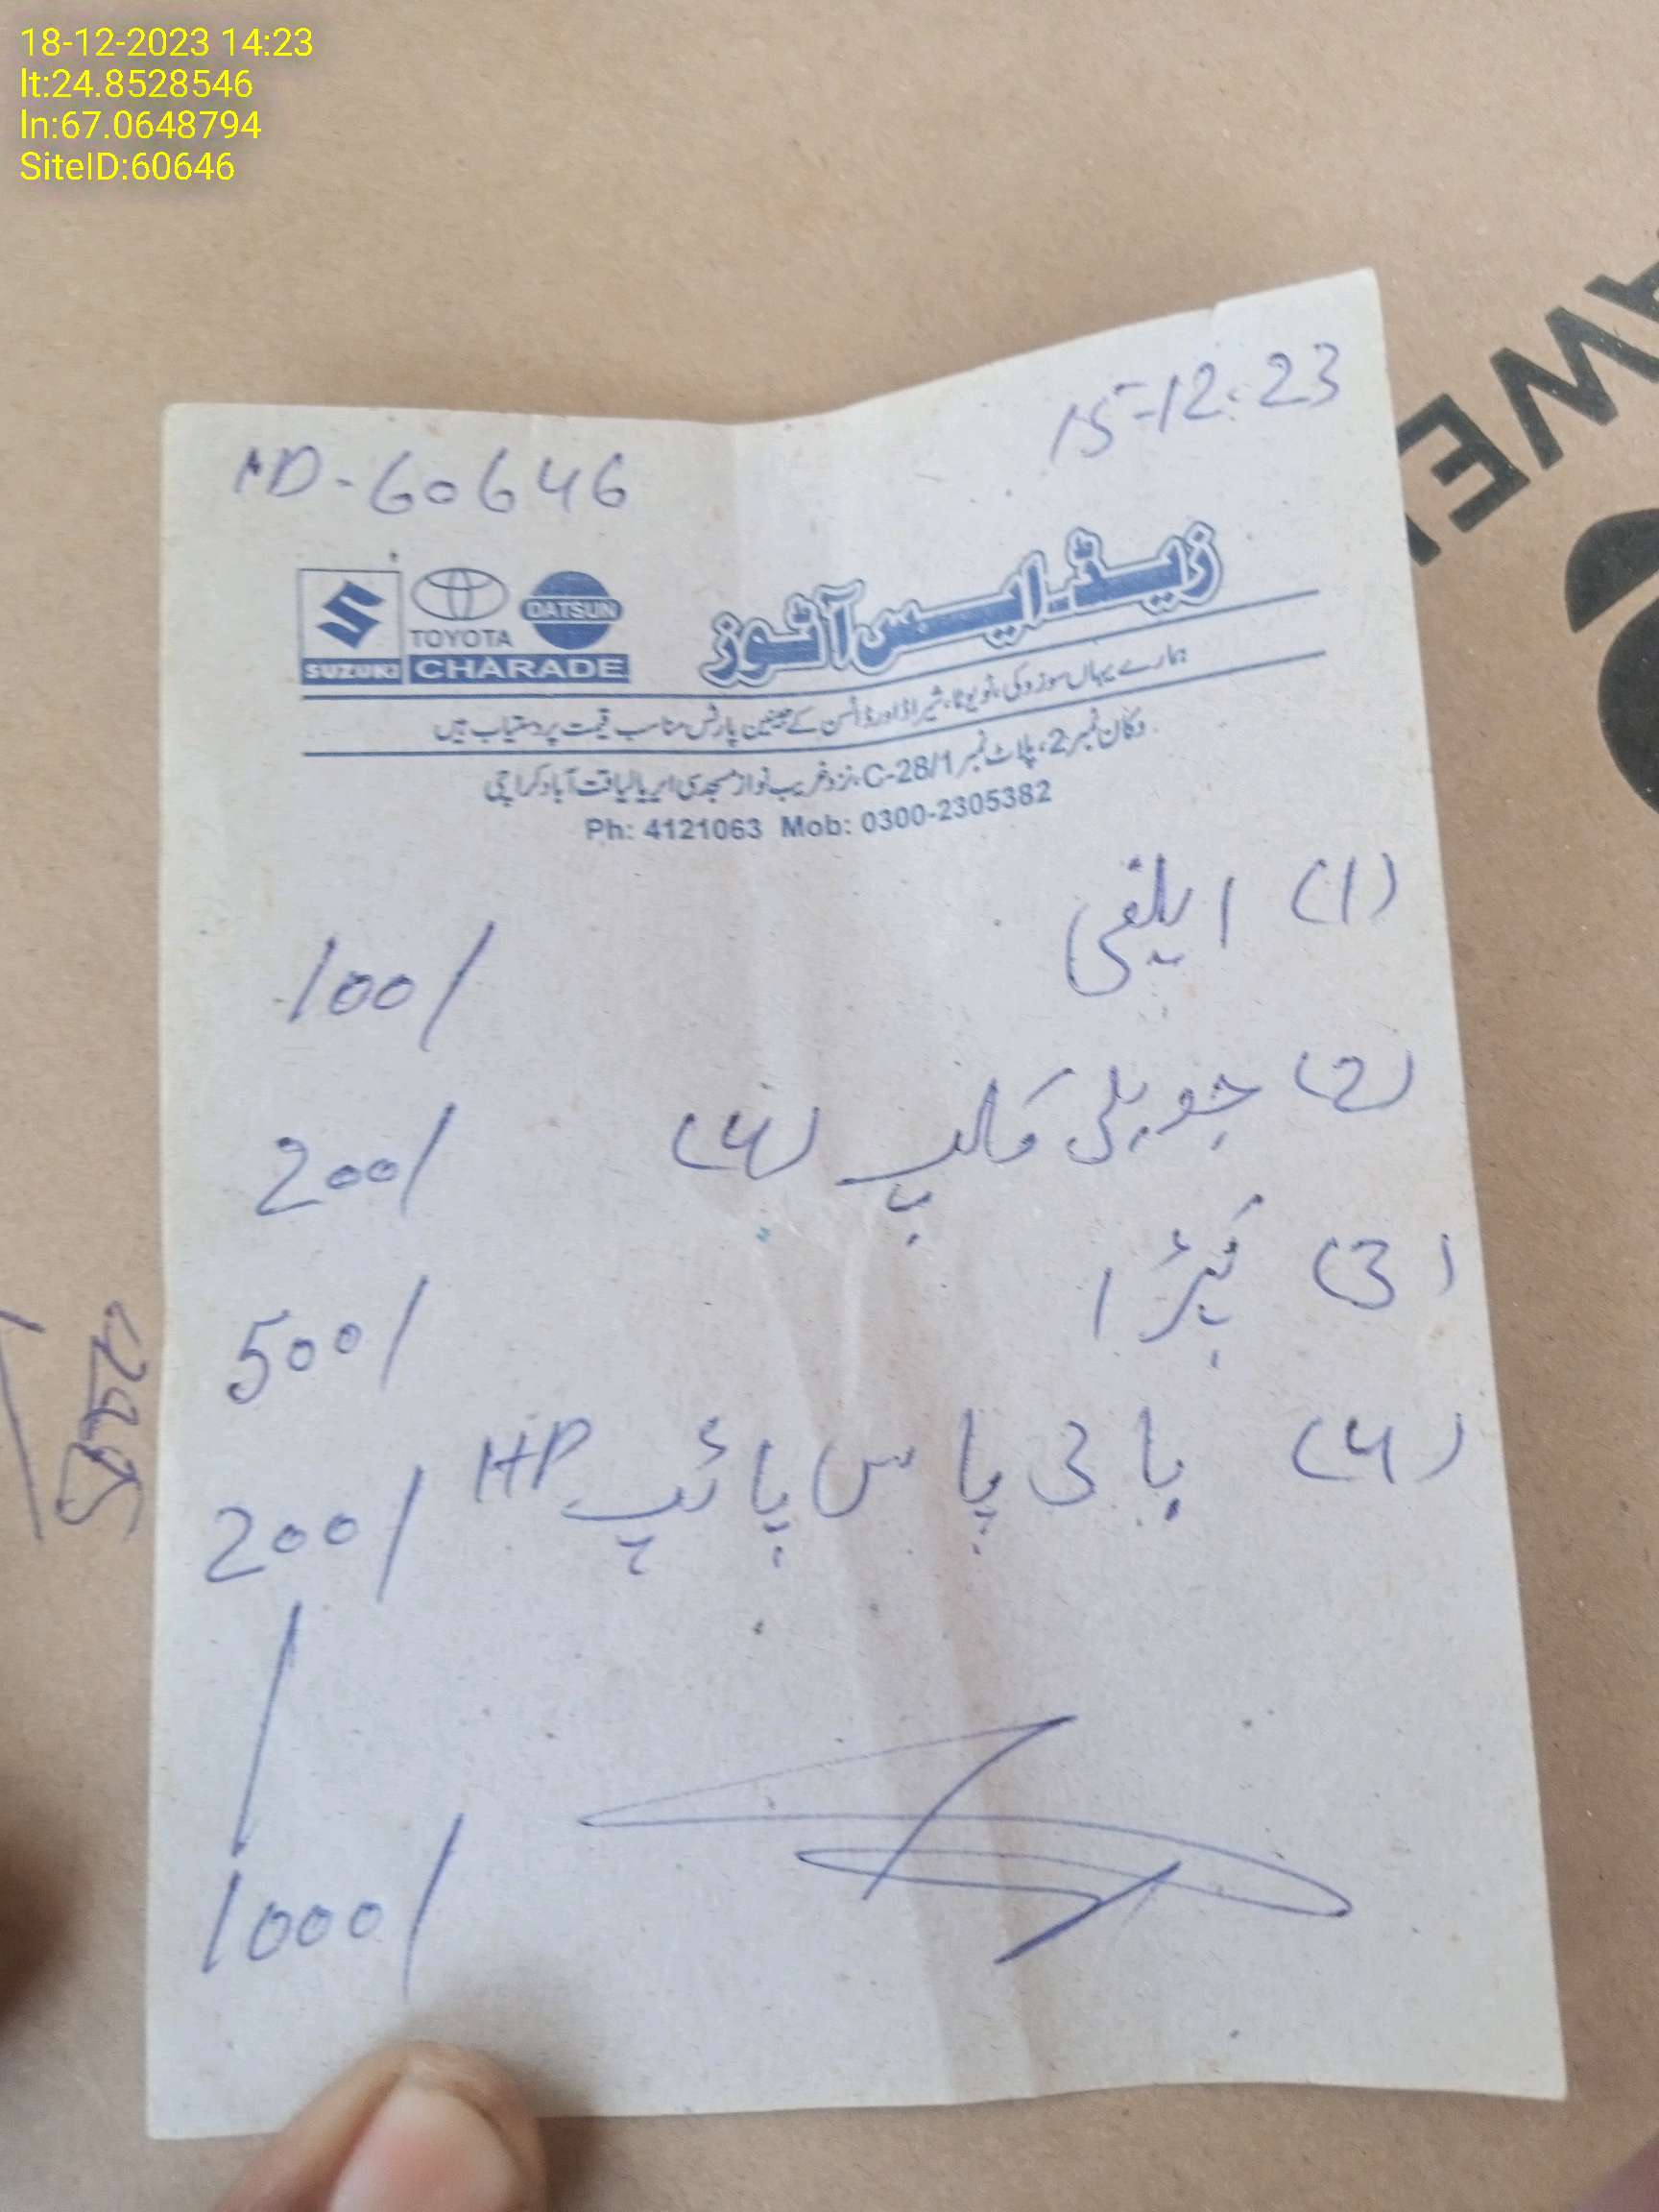 18-12-2023 14:23
lt:24.8528546
ln:67.0648794
SiteID:60646
15-12-23
ID-60646
SUZUKI
TOYOTA
DATSUN
CHARADE
زیڈ۔ایس آٹوز
ہمارے یہاں سوزوکی، ٹویوٹا، شیراڈ اور ڈاٹسن کے جینین پارٹس مناسب قیمت پر دستیاب ہیں
دکان نمبر 2، پلاٹ نمبر C-28/1، نزد غریب نواز مسجد سی ایریا لیاقت آباد کراچی
Ph: 4121063 Mob: 0300-2305382
(1) ایلفی 100/
(2) جوبلی کلپ (4) 200/
(3) کپڑا 500/
(4) بائی پاس پائپ HP 200/
1000/